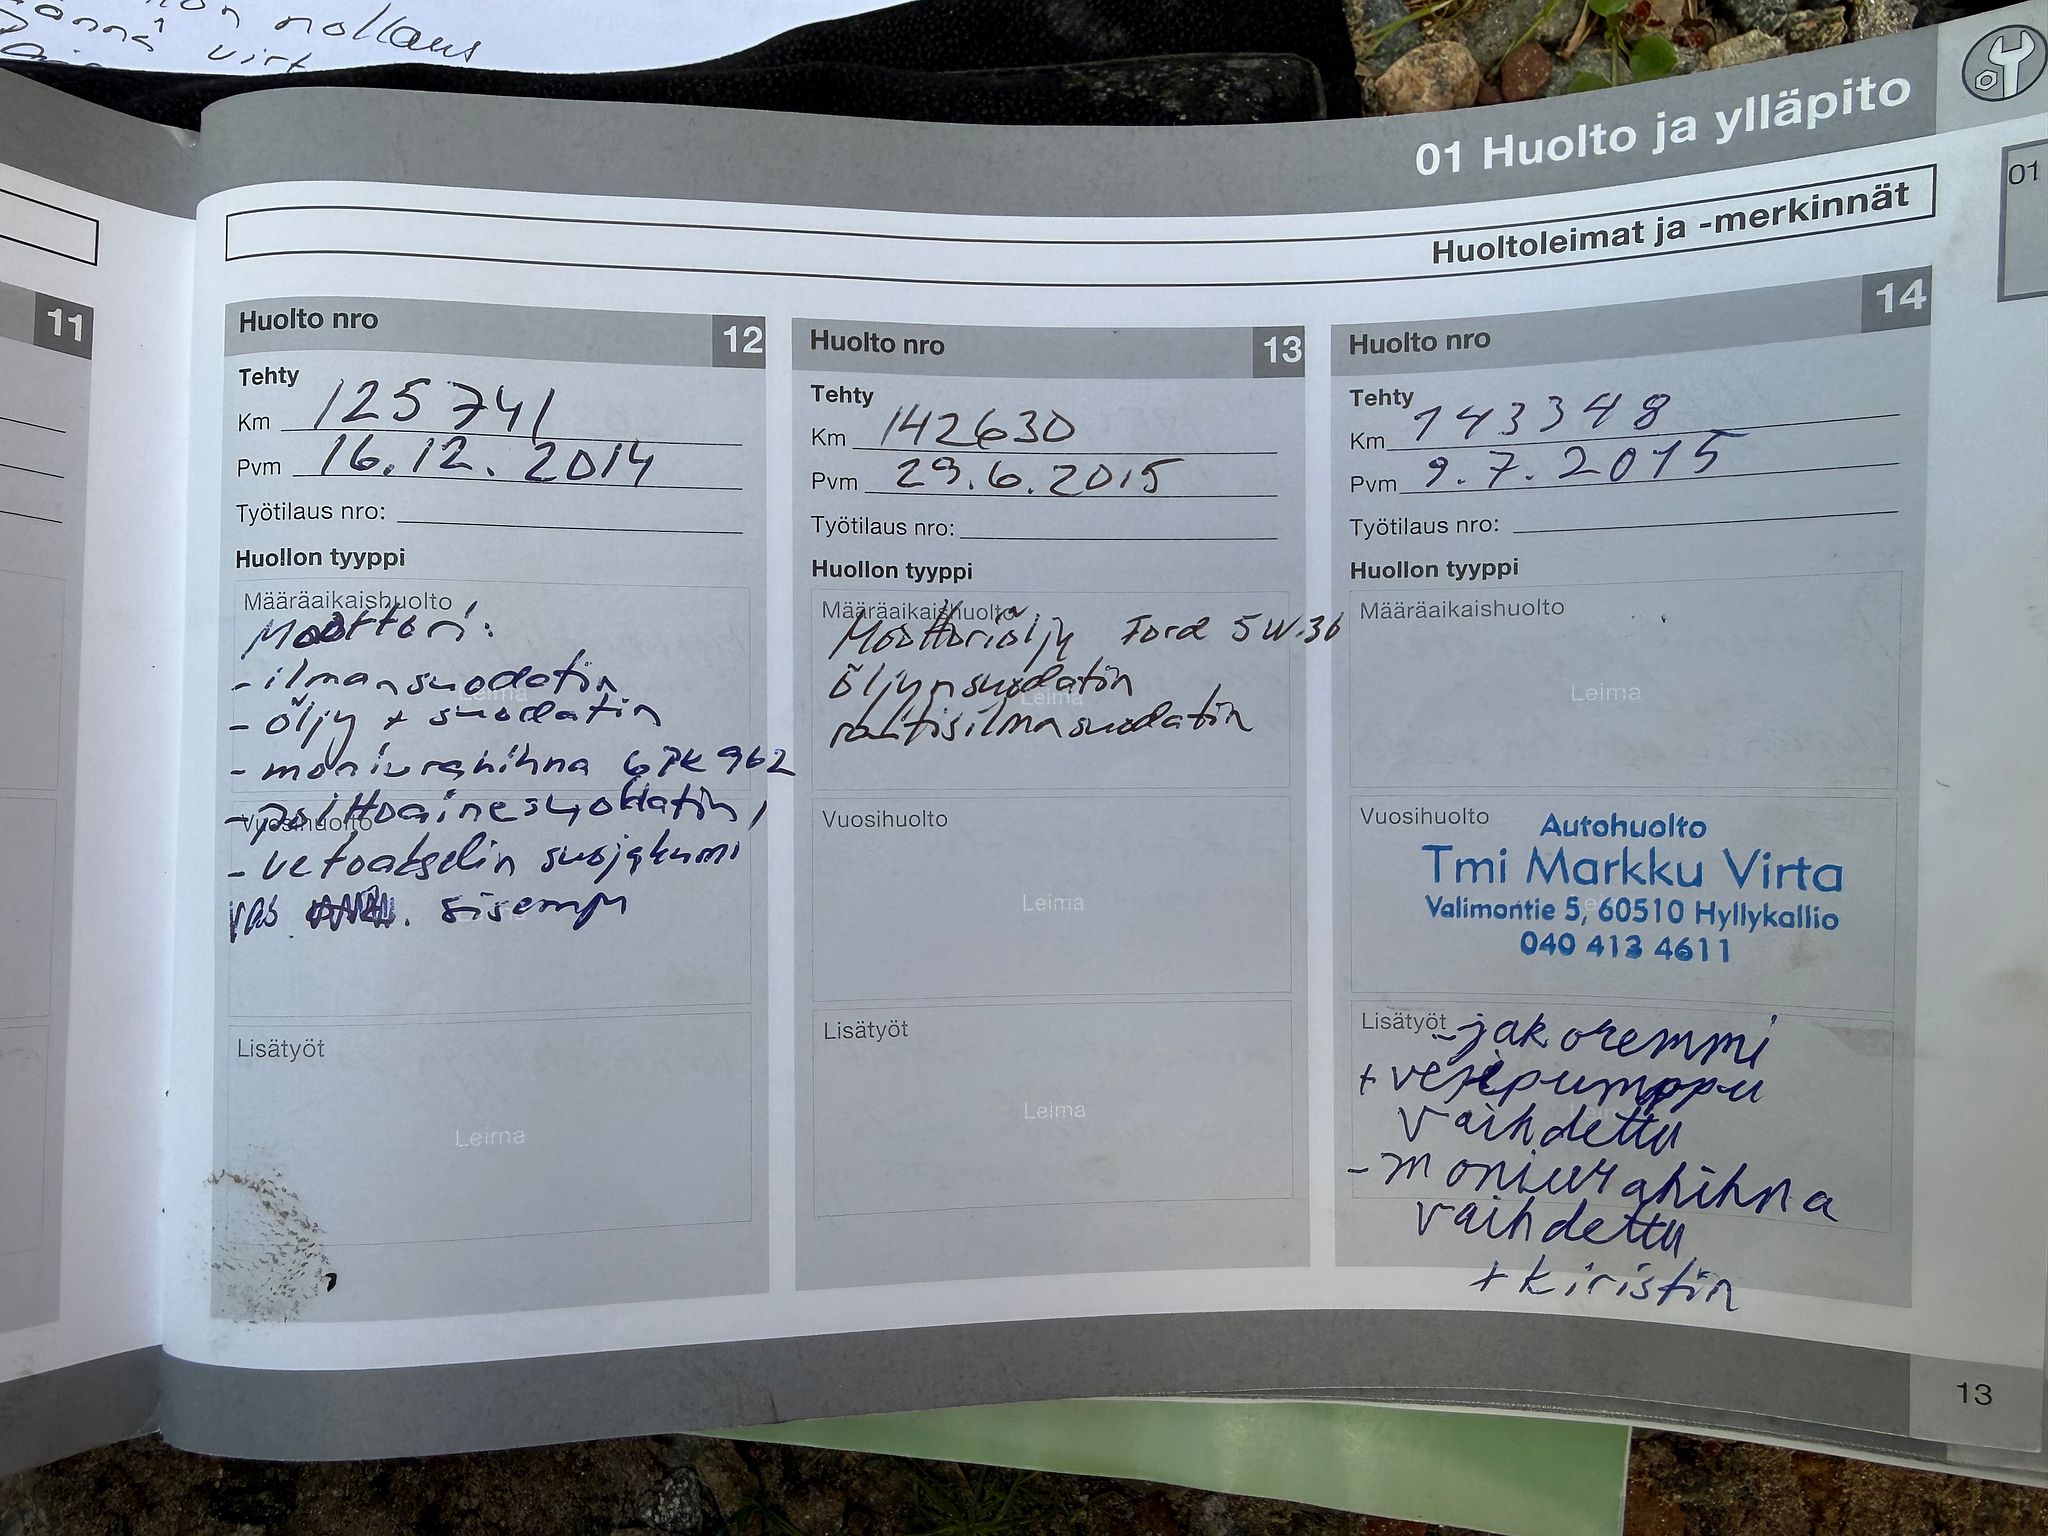 nollaus
virt
01 Huolto ja ylläpito
01
Huoltoleimat ja -merkinnät
11
Huolto nro 12
Tehty
Km 125 741
Pvm 16.12.2014
Työtilaus nro:
Huollon tyyppi
Määräaikaishuolto
Moottori:
- ilmansuodatin
Leima
- öljy + suodatin
- moniurahihna 6PK 962
- polttoainesuodatin
Vuosihuolto
- vetoakselin suojakumi
vas. sisempi
Lisätyöt
Leima
Huolto nro 13
Tehty
Km 142630
Pvm 29.6.2015
Työtilaus nro:
Huollon tyyppi
Määräaikaishuolto
Moottoriöljy Ford 5W-30
öljynsuodatin
Leima
raitisilmasuodatin
Vuosihuolto
Leima
Lisätyöt
Leima
Huolto nro 14
Tehty
Km 143348
Pvm 9.7.2015
Työtilaus nro:
Huollon tyyppi
Määräaikaishuolto
Leima
Vuosihuolto
Autohuolto
Tmi Markku Virta
Valimontie 5, 60510 Hyllykallio
040 413 4611
Lisätyöt
- jakoremmi
+ vesipumppu
Leima
vaihdettu
- moniurahihna
vaihdettu
+ kiristin
13